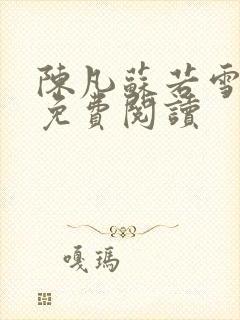 陳凡蘇若雪
免費閱讀
嘎瑪